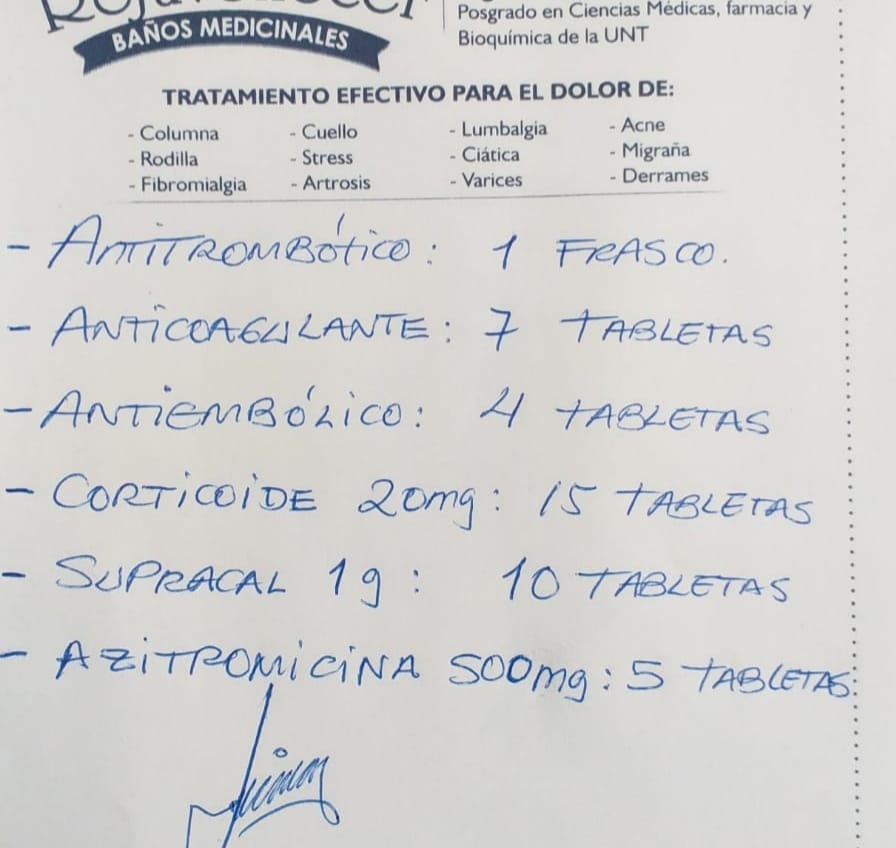 BAÑOS MEDICINALES
Posgrado en Ciencias Médicas, farmacia y
Bioquímica de la UNT
TRATAMIENTO EFECTIVO PARA EL DOLOR DE:
- Columna - Cuello - Lumbalgia - Acne
- Rodilla - Stress - Ciática - Migraña
- Fibromialgia - Artrosis - Varices - Derrames
- ANTITROMBÓTICO: 1 FRASCO.
- ANTICOAGULANTE: 7 TABLETAS
- ANTIEMBÓLICO: 4 TABLETAS
- CORTICOIDE 20mg: 15 TABLETAS
- SUPRACAL 1g: 10 TABLETAS
- AZITROMICINA 500mg: 5 TABLETAS